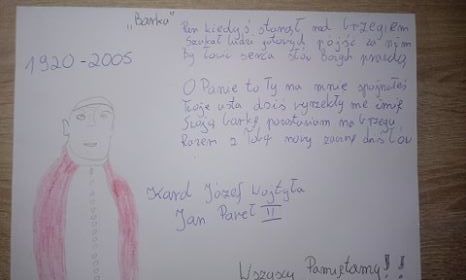 „Barka”
Pan kiedyś stanął nad brzegiem
Szukał ludzi gotowych pójść za nim
By łowić serca słów Bożych prawdą
1920-2005
O Panie to Ty na mnie spojrzałeś
Twoje usta dziś wyrzekły me imię
Swoją barkę pozostawiam na brzegu
Razem z Tobą nowy zacznę dziś łów
Karol Józef Wojtyła
Jan Paweł II
Wszyscy Pamiętamy!!